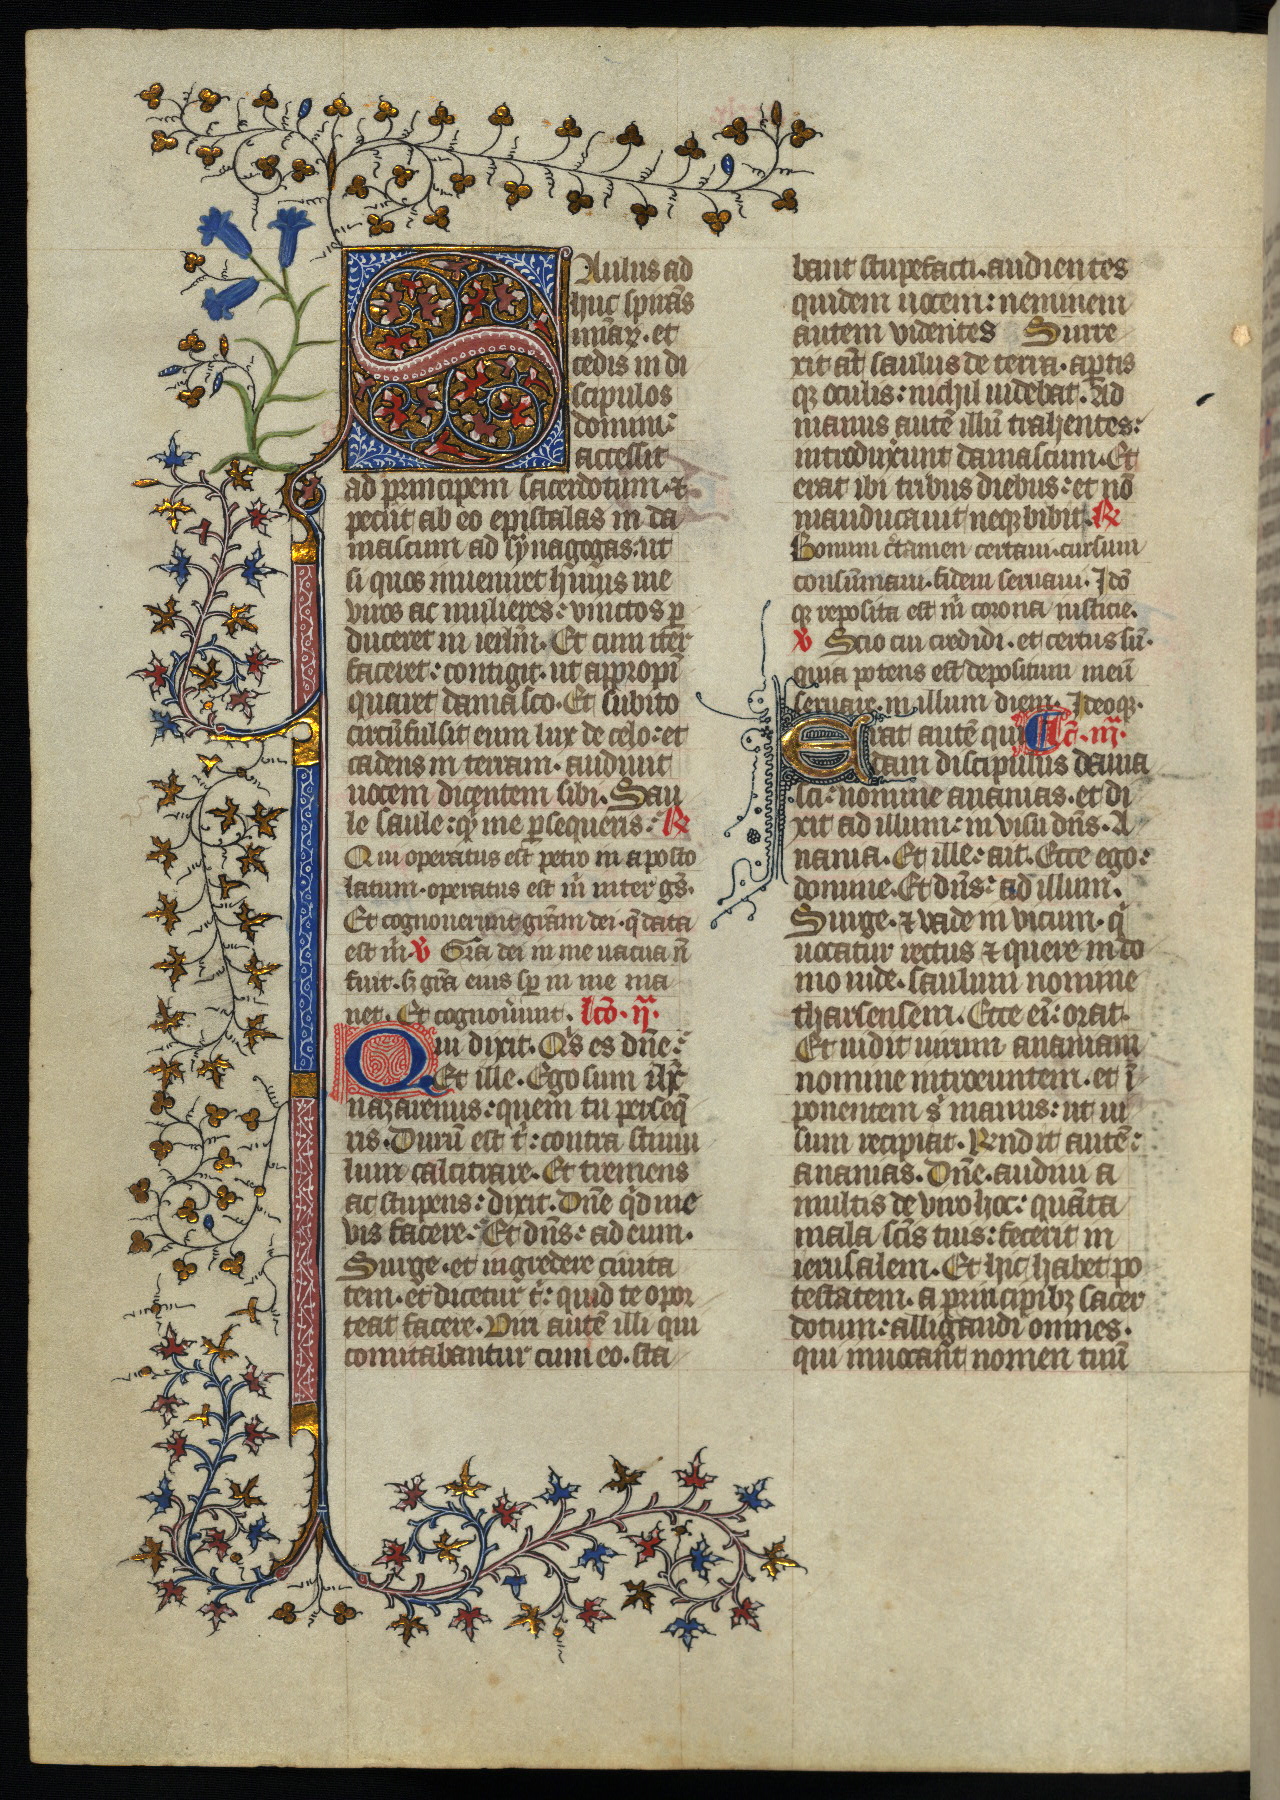 SAulus ad
huc spirãs
minaꝝ. et
cedis in di
scipulos
domini:
accessit
ad principem sacerdotum. ⁊
peciit ab eo epistalas in da
mascum ad synagogas: ut
si quos inueniret huius uie
viros ac mulieres: vinctos p̱
duceret in ierlm̃. Et cum iter
faceret: contigit. ut appropĩ
quaret damasco. Et subito
circũfulsit eum lux de celo: et
cadens in terram. audiuit
uocem dicentem sibi. Sau
le saule: qͥ me ꝑsequeris: ℟
Qui operatus est petro in aposto
latum. operatus est m̃ inter gẽs.
Et cognouerunt grãm dei. q̃ data
est m̃. ℣ Grã dei in me uacua ñ
fuit. sꝫ grã eius sꝑ in me ma
net. Et cognouũnt. lc̃o. ij.ᵃ
Qui dixit. Qͥs es dñe:
Et ille. Ego sum ihc̃
nazarenus: quem tu perseq̃
ris. Durũ est t̃: contra stimu
lum calcitrare. Et tremens
ac stupens: dixit. Dñe qͥd me
vis facere. Et dñs: ad eum.
Surge. et ingredere ciuita
tem. et dicetur t̃: quid te opor
teat facere. Viri autẽ illi qui
comitabantur cum eo. sta
bant stupefacti. audientes
quidem uocem: neminem
autem videntes Surre
xit aũt saulus de terra. apertis
qꝫ oculis: nichil uidebat. Ad
manus autẽ illũ trahentes:
introduxerunt damascum. Et
erat ibi tribus diebus: et nõ
manducauit neqꝫ bibit. ℟
Bonum c̃tamen certaui. cursum
consũmaui. fidem seruaui. Ido
qꝫ reposita est m̃ corona iusticie.
℣ Scio cui credidi. et certus sũ.
quia potens est depositum meũ
seruare. in illum diem. Ideoqꝫ.
Erat autẽ qui lc̃. iij.ᵃ
dam discipulus dama
sci: nomine ananias. et di
xit ad illum: in visu dñs. A
nania. Et ille: ait. Ecce ego:
domine. Et dñs: ad illum.
Surge. ⁊ vade in vicum. qͥ
uocatur rectus ⁊ quere in do
mo iude. saulum nomine
tharsensem. Ecce eĩ: orat.
Et uidit uirum ananiam
nomine introeuntem. et ĩ
ponentem s̃ manus: ut ui
sum recipiat. Rñdit autẽ:
ananias. Dñe. audiui a
multis de viro hoc: quãta
mala scĩs tuis: fecerit in
ierusalem. Et hic habet po
testatem. a principibꝫ sacer
dotum: alligandi omnes.
qui inuocãnt nomen tuũ